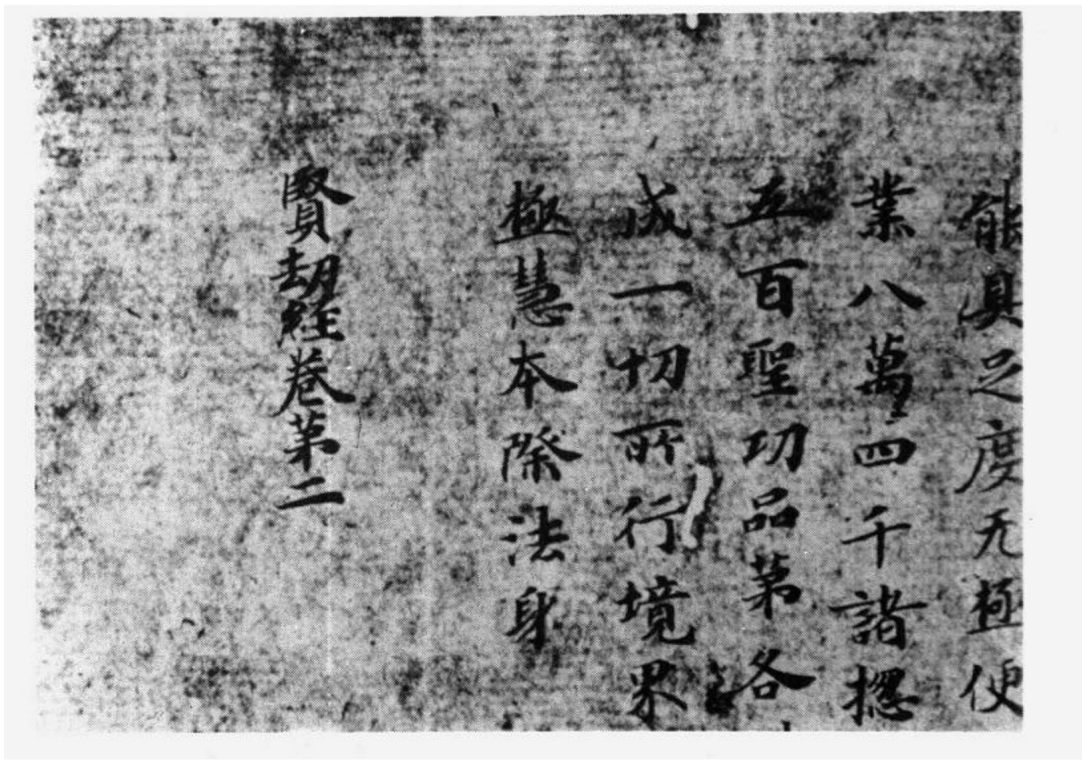 能具足度无極便
業八萬四千諸揔
五百聖功品第各
成一切所行境界
極慧本際法身
賢劫經卷第二